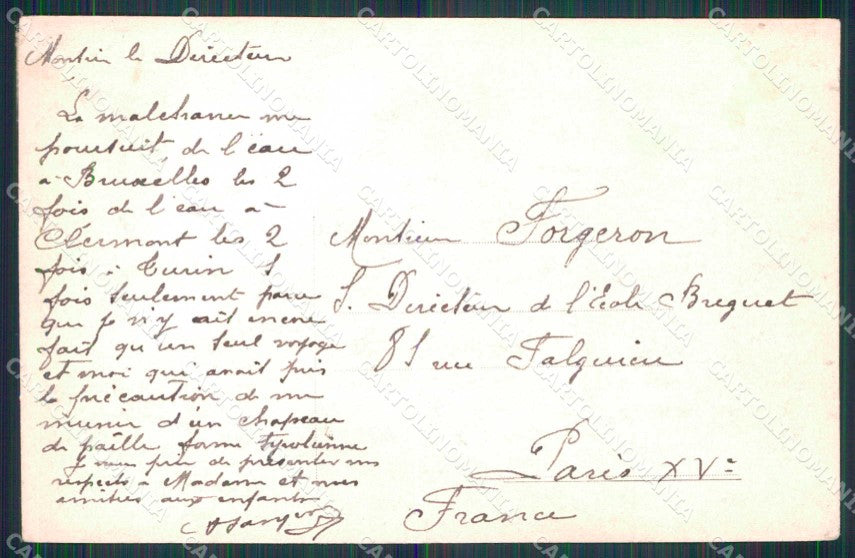 Monsieur le Directeur
La malchance me
poursuit, de l'eau
à Bruxelles les 2
fois de l'eau à
Clermont les 2
fois à Turin 1
fois seulement parce
que je n'y ait encore
fait qu'un seul voyage
et moi qui avait pris
la précaution de me
munir d'un chapeau
de paille forme Tyrolienne
Je vous prie de présenter mes
respects à Madame et mes
amitiés aux enfants
Monsieur Forgeron
S. Directeur de l'École Breguet
81 rue Falguière
Paris XVe
France
CARTOLINOMANIA